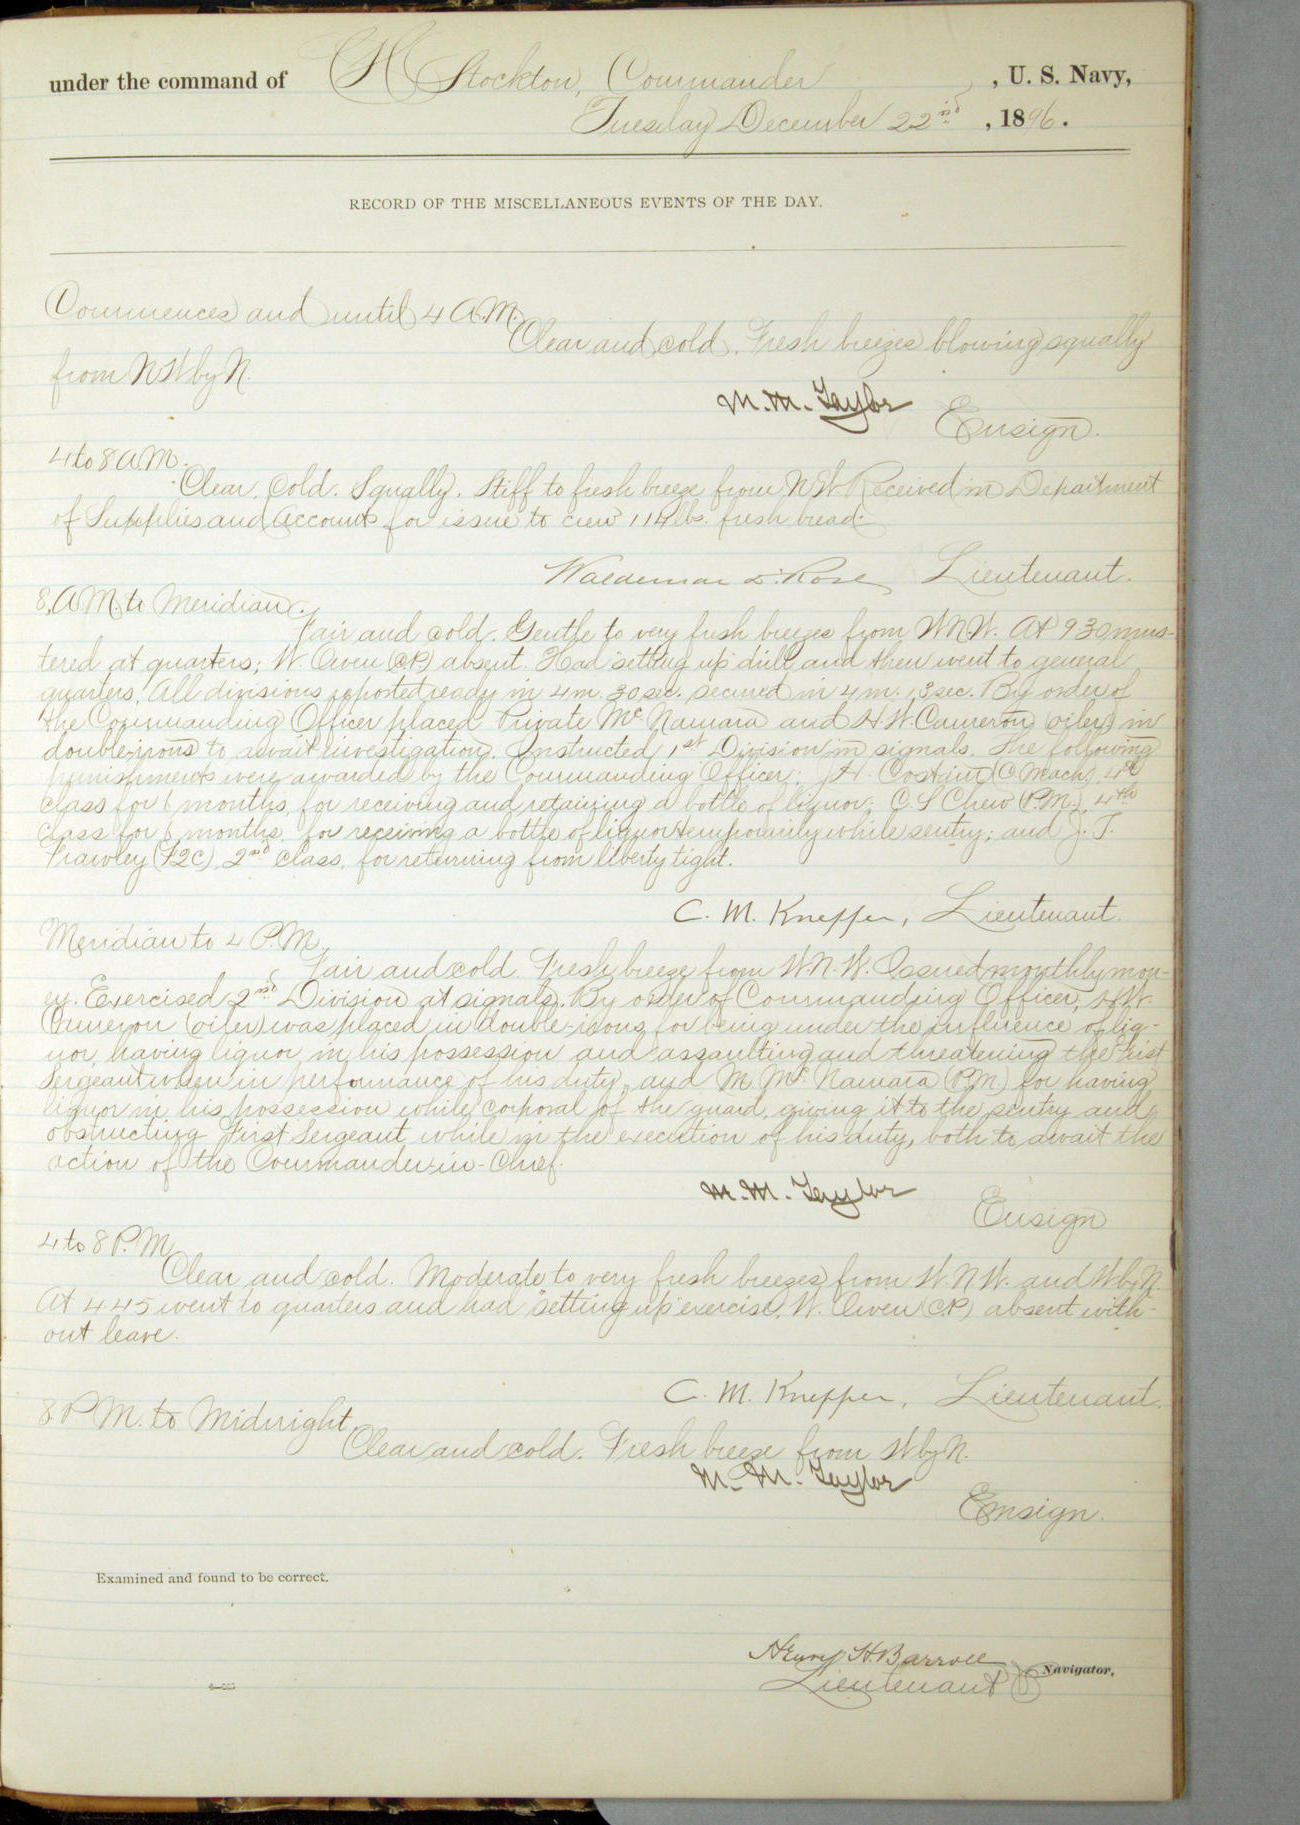 under the command of C H Stockton, Commander, U. S. Navy,
Tuesday December 22nd, 1896.
RECORD OF THE MISCELLANEOUS EVENTS OF THE DAY.
Commences and until 4 A.M.
Clear and cold. Fresh breezes blowing squally
from NW by N.
M. M. Taylor Ensign.
4 to 8 A.M.
Clear. Cold. Squally. Stiff to fresh breeze from N.W. Received in Department
of Supplies and Accounts for issue to crew 114 lbs. fresh bread.
Waldemar D. Rose Lieutenant.
8 A.M. to Meridian.
Fair and cold. Gentle to very fresh breezes from W.N.W. At 9 30 mus-
tered at quarters; W. Owen (C.P.) absent. Had "setting up" drill, and then went to general
quarters. All divisions reported ready in 4 m. 30 sec. secured in 4 m. 3 sec. By order of
the Commanding Officer placed Private McNamara and H. W. Cameron (oiler) in
double-irons to await investigation. Instructed 1st Division in signals. The following
punishments were awarded by the Commanding Officer: J. H. Costain (C. Mach), 4th
class for 1 months, for receiving and retaining a bottle of liquor; C. S. Chew (P.M.), 4th
class for 6 months, for receiving a bottle of liquor temporarily while sentry; and J. T.
Frawley (F2C), 2nd class, for returning from liberty tight.
C. M. Knepper, Lieutenant.
Meridian to 4 P.M.
Fair and cold. Fresh breeze from W.N.W. Issued monthly mon-
ey. Exercised 2nd Division at signals. By order of Commanding Officer, H. W.
Cameron (oiler) was placed in double-irons for being under the influence of liq-
uor, having liquor in his possession and assaulting and threatening the First
Sergeant when in performance of his duty, and M. McNamara (P.M.) for having
liquor in his possession while corporal of the guard, giving it to the sentry and
obstructing First Sergeant while in the execution of his duty, both to await the
action of the Commander-in-Chief.
M. M. Taylor
Ensign
4 to 8 P.M.
Clear and cold. Moderate to very fresh breezes from W.N.W. and W by N.
At 4 45 went to quarters and had "setting up" exercise. W. Owen (C.P.) absent with-
out leave.
C. M. Knepper, Lieutenant.
8 P.M. to Midnight.
Clear and cold. Fresh breeze from W by N.
M. M. Taylor
Ensign.
Examined and found to be correct.
Henry H. Barroll
Lieutenant Navigator.